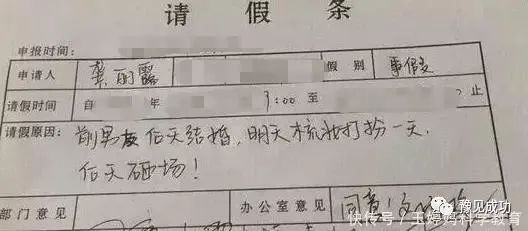 请假条
申报时间：
申请人 龚丽露 假别 事假
请假时间 自 年 9:00 至 止
请假原因： 前男友后天结婚，明天梳妆打扮一天，
后天砸场！
部门意见 办公室意见 同意！
豫见成功
快传号 / 玉婷妈科学教育